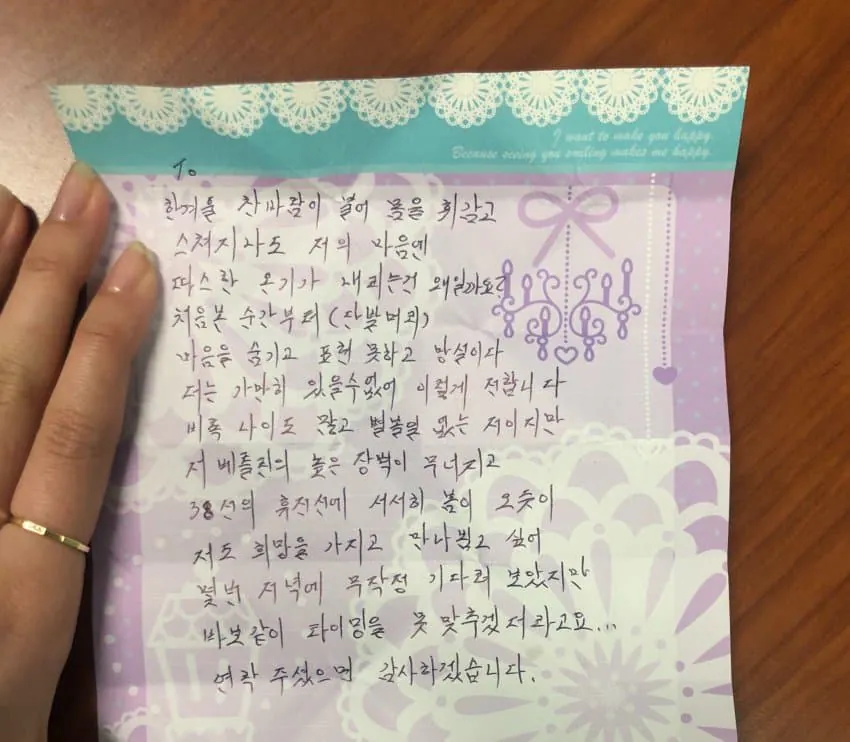 I want to make you happy.
Because seeing you smiling makes me happy.
To
한겨울 찬바람이 불어 몸을 휘감고
스쳐지나도 저의 마음엔
따스한 온기가 내리는건 왜일까요?
처음본 순간부터 (단발머리)
마음을 숨기고 표현 못하고 망설이다
더는 가만히 있을수없어 이렇게 전합니다
비록 나이도 많고 별볼일 없는 저이지만
저 베를린의 높은 장벽이 무너지고
38선의 휴전선에 서서히 봄이 오듯이
저도 희망을 가지고 만나뵙고 싶어
몇번 저녁에 무작정 기다려 보았지만
바보같이 타이밍을 못 맞추겠더라고요...
연락 주셨으면 감사하겠습니다.